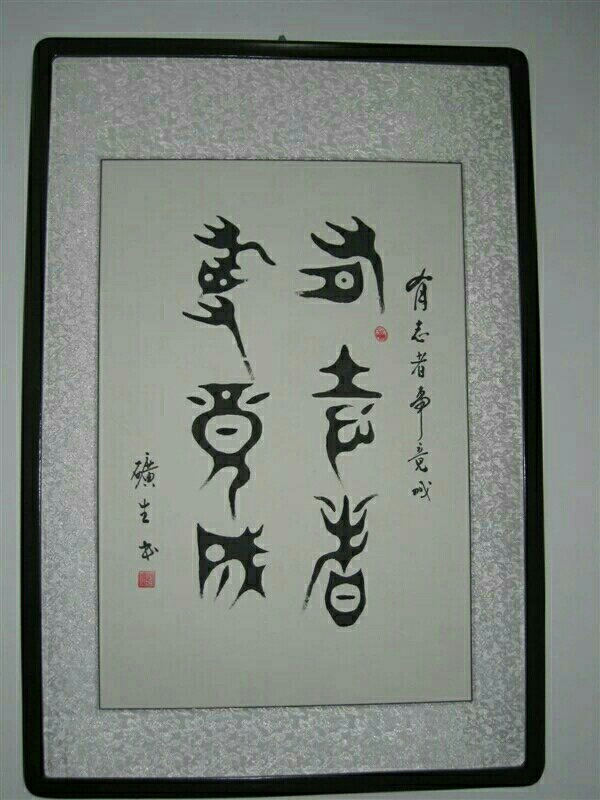 有志者事竟成
有志者
事竟成
礦生书